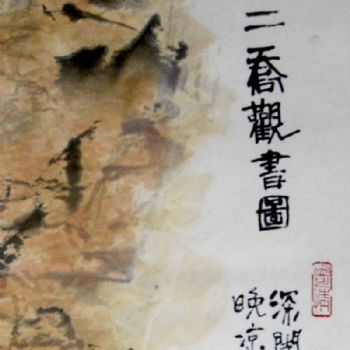 二喬觀書圖
深閨
晚凉